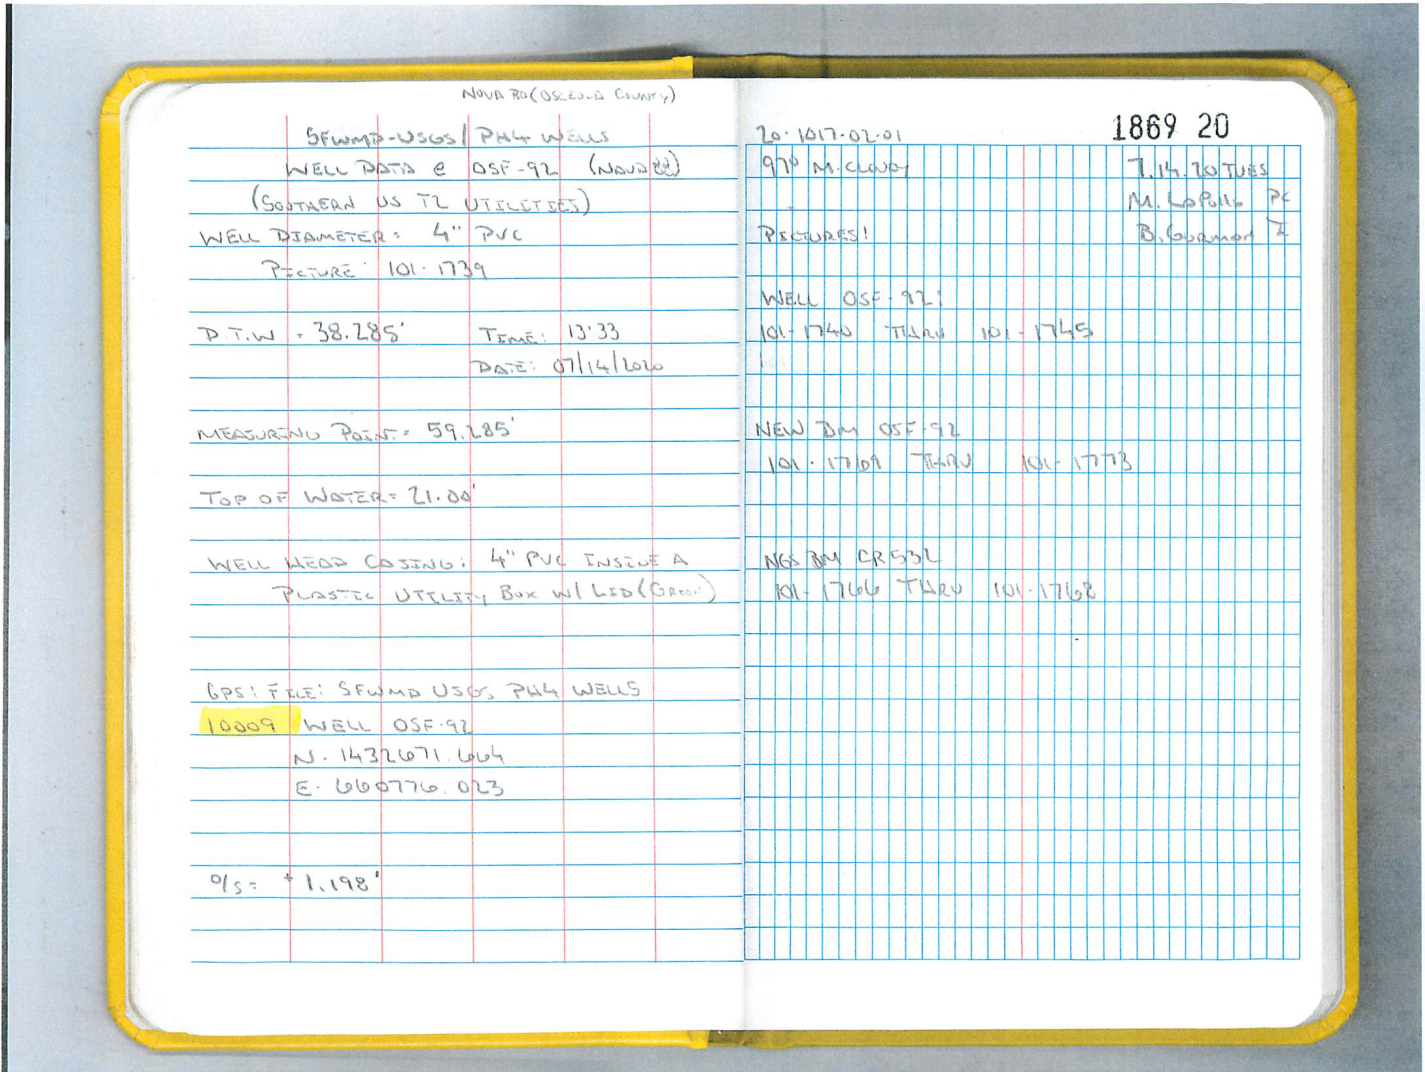 NOVA RD (OSCEOLA COUNTY)
SFWMD-USGS/ PH4 WELLS
WELL DATA @ OSF-92 (NAVD88)
(SOUTHERN US TZ UTILITIES)
WELL DIAMETER: 4" PVC
PICTURE: 101-1739
D.T.W = 38.285' TIME: 13:33
DATE: 07/14/2020
MEASURING POINT= 59.285'
TOP OF WATER= 21.00'
WELL HEAD CASING: 4" PVC INSIDE A
PLASTIC UTILITY BOX W/ LID (GREEN)
GPS: FILE: SFWMD USGS PH4 WELLS
10009 WELL OSF-92
N. 1432671.664
E. 660776.023
O/S= +1.198'
1869 20
20-1017-02-01
97° M. CLOUDY 7.14.20 TUES
M. LoPollo PC
PICTURES! B. Gorman I
WELL OSF-92:
101-1740 THRU 101-1745
NEW BM OSF-92
101-1769 THRU 101-1773
NGS BM CR532
101-1766 THRU 101-1768